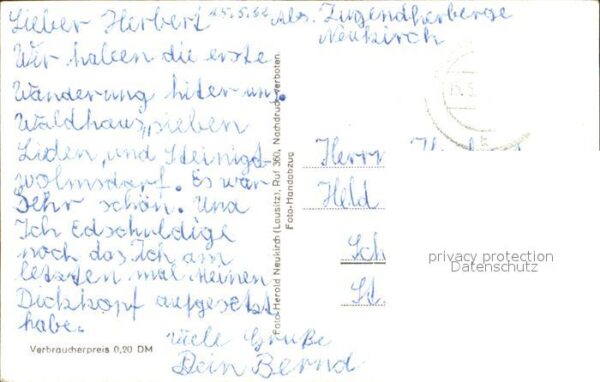 Lieber Herbert 25.5.62
Abs. Jugendherberge
Neukirch
Wir haben die erste
Wanderung hiter uns.
Waldhaus, sieben
Liden, und Steinigd-
wolmsdorf. Es war
Sehr schön. Und
Ich Edschuldige
noch das Ich am
letzten mal Meinen
Dickkopf aufgesetzt
habe.
viele Grüße
Dein Bernd
Verbraucherpreis 0,20 DM
Foto-Herold Neukirch (Lausitz), Ruf 360, Nachdruck verboten
Foto-Handabzug
Herr
Held
Sch
St.
privacy protection
Datenschutz